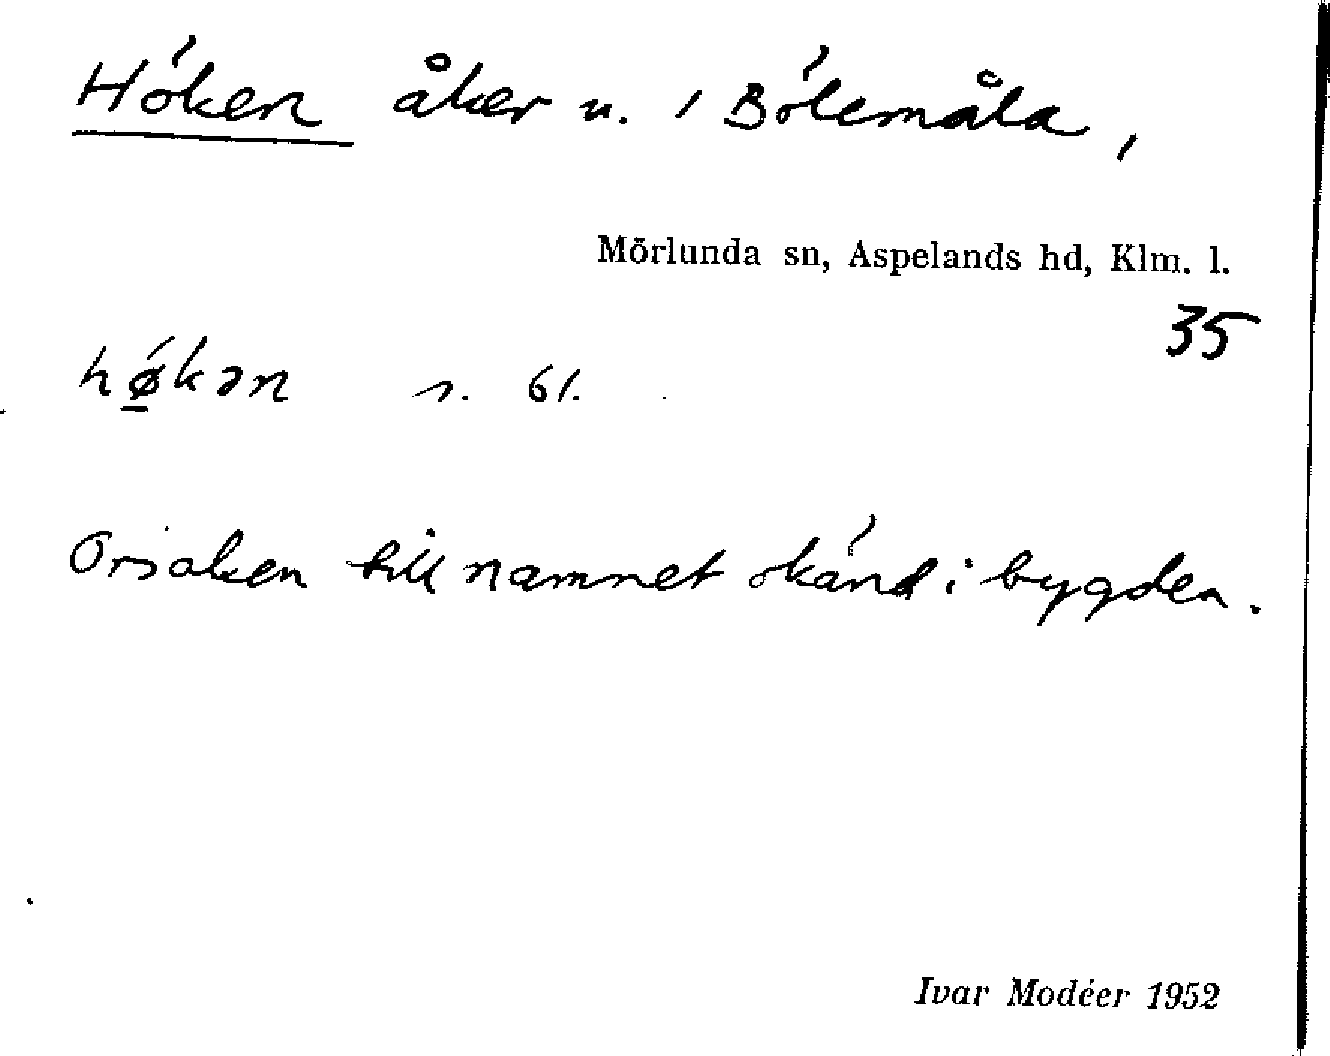 Höken åker u. 1 Bölemåla,
Mörlunda sn, Aspelands hd, Klm. l.
35
hǿ̱kən s. 61.
Orsaken till namnet okänd i bygden.
Ivar Modéer 1952